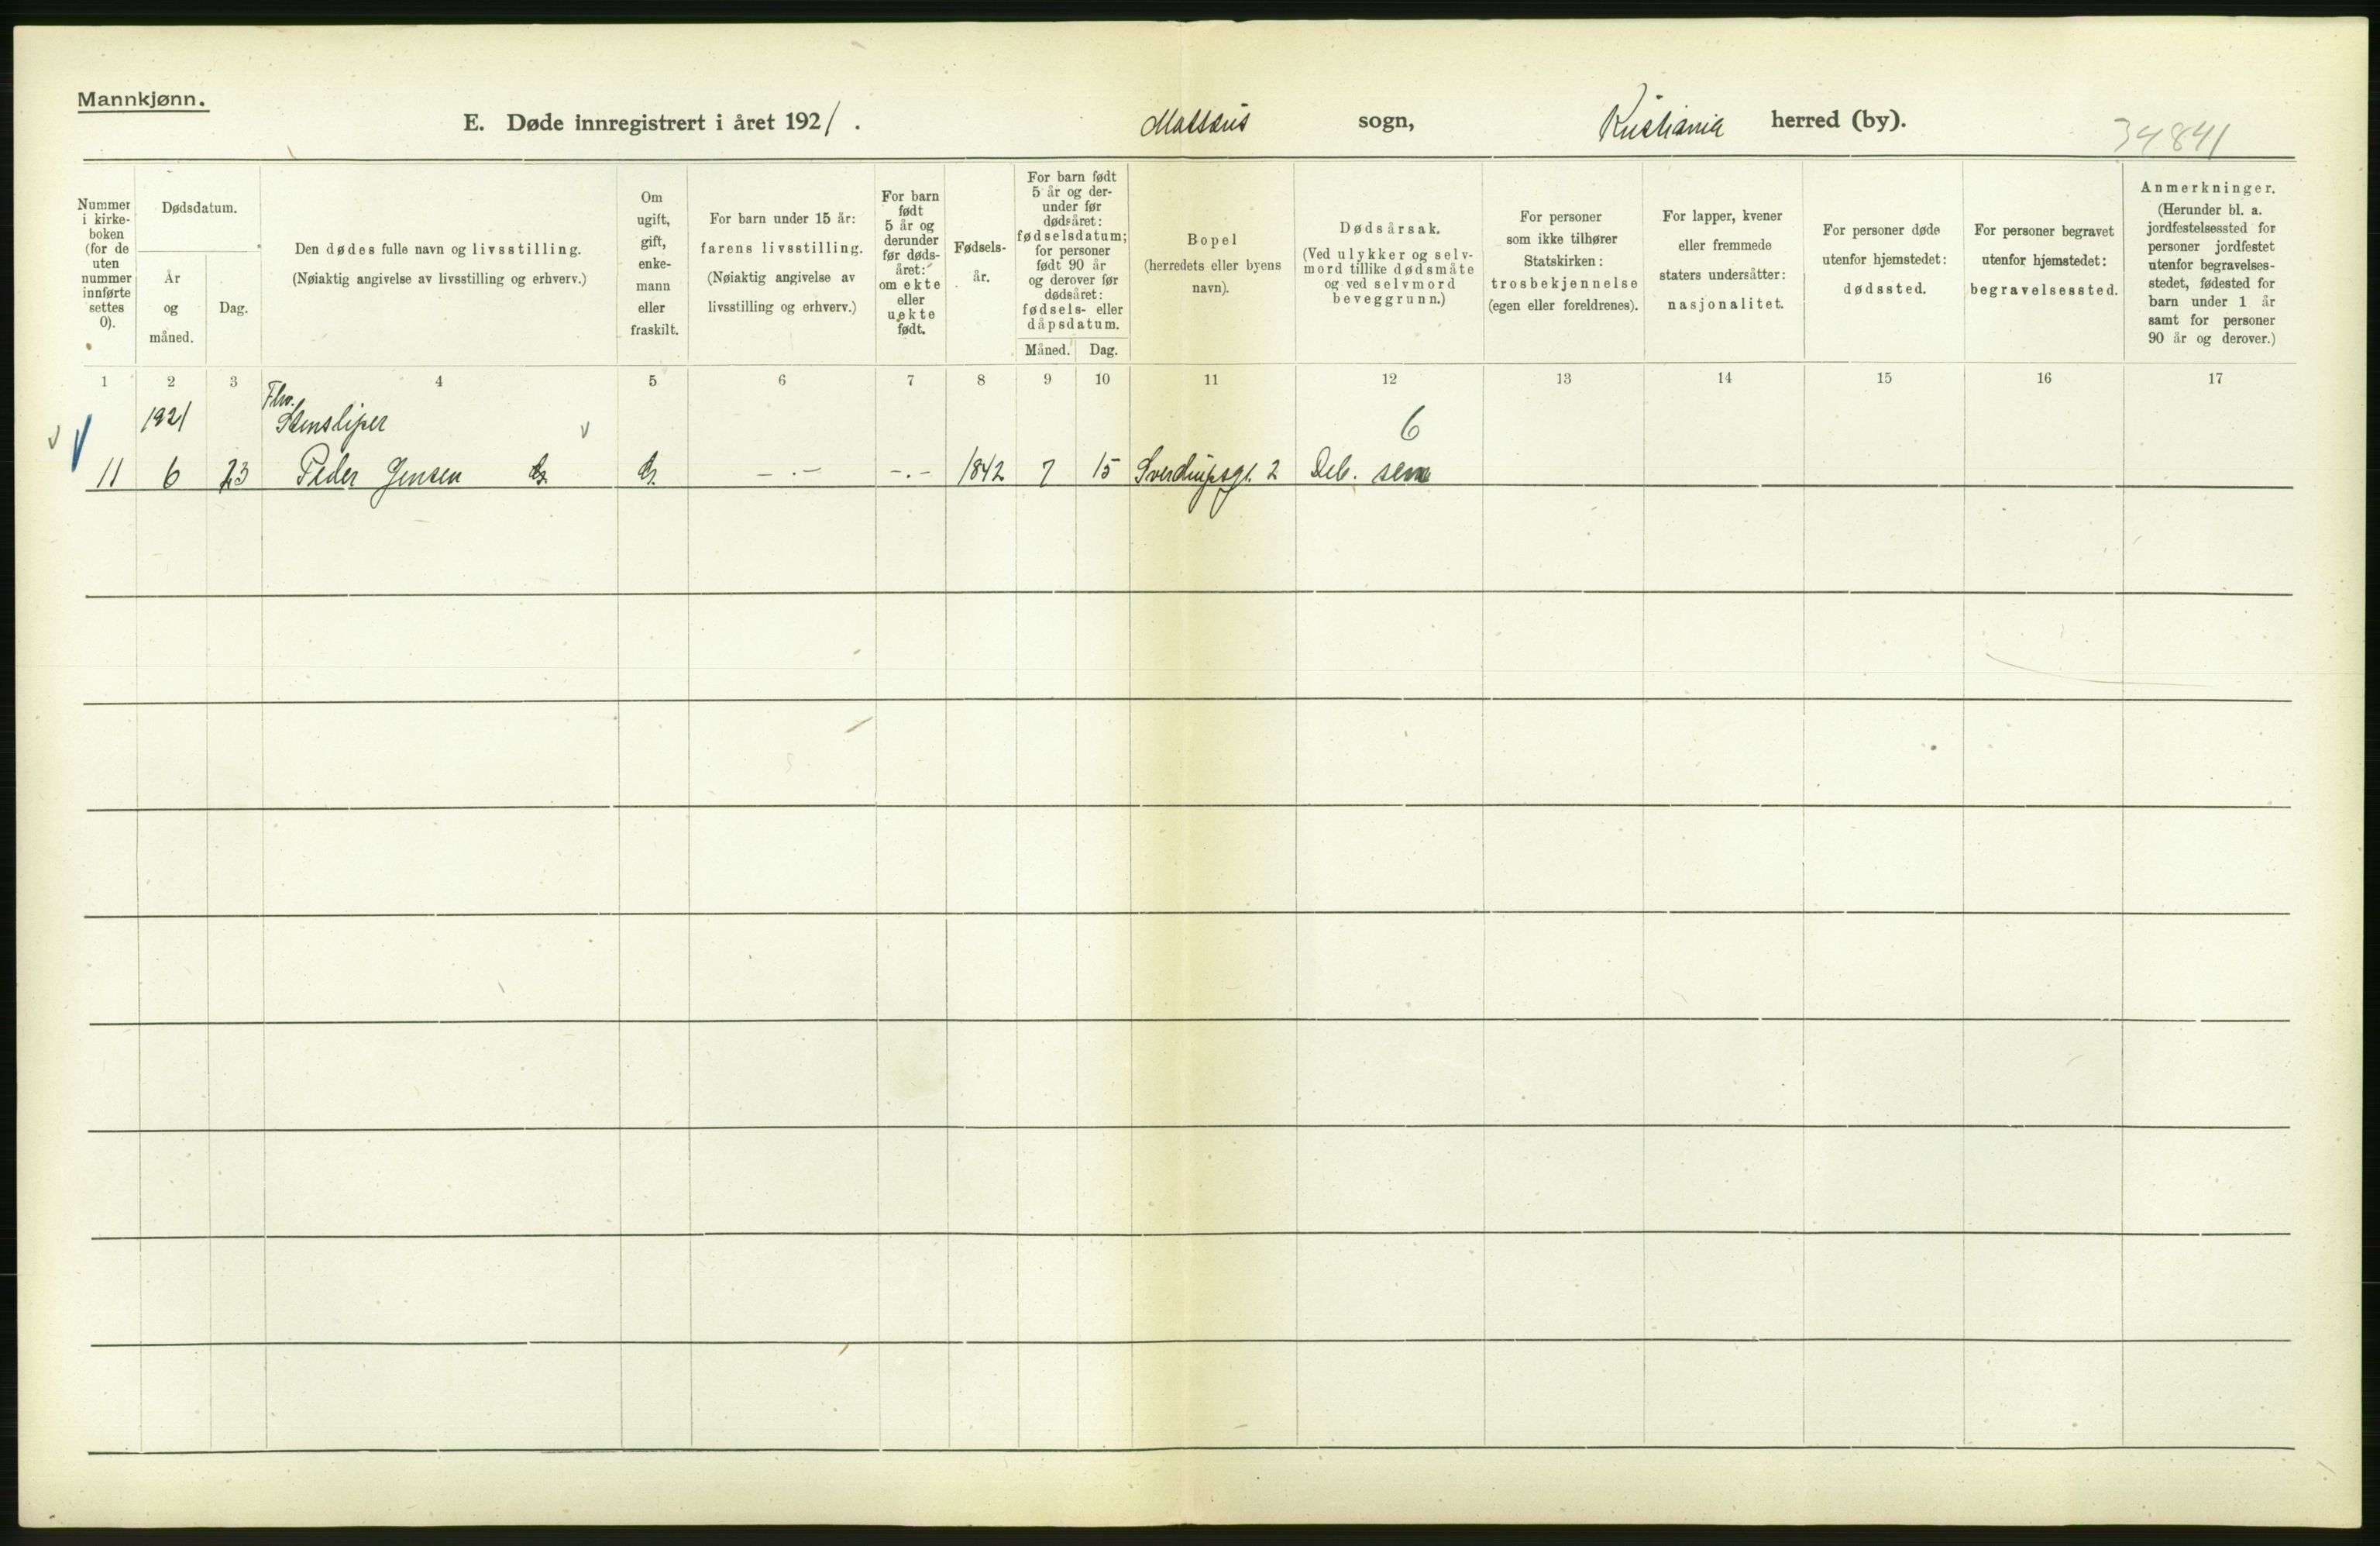 Mannkjønn.
E. Døde innregistrert i året 1921. Mattæus sogn, Kristiania herred (by). 34841
Nummer
i kirke-
boken
(for de
uten
nummer
innførte
settes
0).
Dødsdatum.
År
og
måned.
Dag.
Den dødes fulle navn og livsstilling.
(Nøiaktig angivelse av livsstilling og erhverv.)
Om
ugift,
gift,
enke-
mann
eller
fraskilt.
For barn under 15 år:
farens livsstilling.
(Nøiaktig angivelse av
livsstilling og erhverv.)
For barn
født
5 år og
derunder
før døds-
året:
om ekte
eller
uekte
født.
Fødsels-
år.
For barn født
5 år og der-
under før
dødsåret:
fødselsdatum;
for personer
født 90 år
og derover før
dødsåret:
fødsels- eller
dåpsdatum.
Måned. Dag.
Bopel
(herredets eller byens
navn).
Dødsårsak.
(Ved ulykker og selv-
mord tillike dødsmåte
og ved selvmord
beveggrunn.)
For personer
som ikke tilhører
Statskirken:
trosbekjennelse
(egen eller foreldrenes).
For lapper, kvener
eller fremmede
staters undersåtter:
nasjonalitet.
For personer døde
utenfor hjemstedet:
dødssted.
For personer begravet
utenfor hjemstedet:
begravelsessted.
Anmerkninger.
(Herunder bl. a.
jordfestelsessted for
personer jordfestet
utenfor begravelses-
stedet, fødested for
barn under 1 år
samt for personer
90 år og derover.)
1 2 3 4 5 6 7 8 9 10 11 12 13 14 15 16 17
Fhv.
1921 Stensliper 6
11 6 23 Peder Jensen g. g. — . — - . - 1842 7 15 Sverdrupsgt. 2 Deb. sen